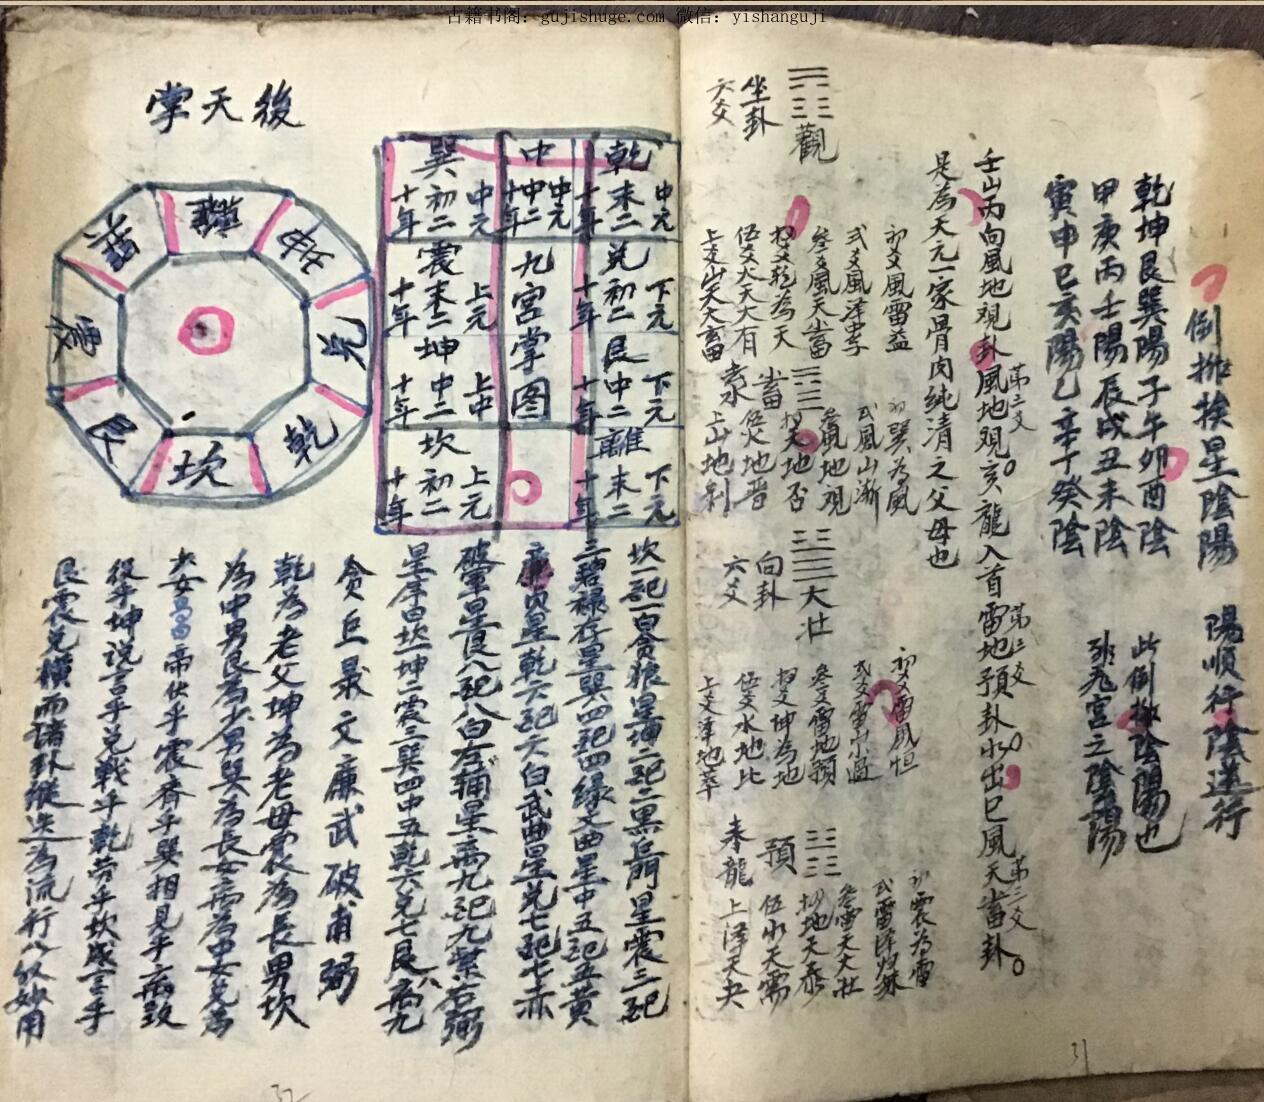 古籍书阁：gujishuge.com 微信：yishanguji
倒排挨星陰陽 陽順行陰逆行
乾坤艮巽陽子午卯酉陰
甲庚丙壬陽辰戌丑未陰
寅申巳亥陽乙辛丁癸陰
此倒排陰陽也
九宫之陰陽
壬山丙向風地观卦風地观亥龍入首雷地預卦水出巳風天畜卦
第三爻
第三爻
第三爻
是為天元一家骨肉純清之父母也
觀
坐卦
六爻
初爻風雷益
弍爻風泽孚
叁爻風天畜
乾為天
伍爻火天大有
上爻山天大畜
畜
水
巽為風
弍風山漸
叁風地观
天地否
伍火地晋
上山地剥
大壮
向卦
六爻
初爻雷風恒
弍爻雷小過
叁爻雷地預
坤為地
伍爻水地比
上爻泽地萃
預
来龍
初震為雷
弍雷泽归妹
叁雷天大壮
地天泰
伍水天需
上泽天夬
31
後天掌
離
坤
兑
乾
坎
艮
震
乾 中元 末二 十年
中 中元 中二 十年
巽 中元 初二 十年
兑 下元 初二 十年
震 上元 末二 十年
九宫掌图
艮 下元 中二 十年
坤 上中 中二 十年
離 下元 末二 十年
坎 上元 初二 十年
坎一起一白贪狼星坤二起二黑巨門星震三起
三碧禄存星巽四起四绿文曲星中五起五黄
廉貞星乾六起六白武曲星兑七起七赤
破軍星艮八起八白左辅星离九起九紫右弼
星 坎一坤二震三巽四中五乾六兑七艮八离九
贪巨录文廉武破甫弼
乾為老父坤為老母震為長男坎
為中男艮為少男巽為長女离為中女兑為
少女 帝出乎震齐乎巽相見乎离致
役乎坤说言乎兑戰乎乾劳乎坎成言乎
艮震兑横而諸卦縱 為流行八 妙用
32